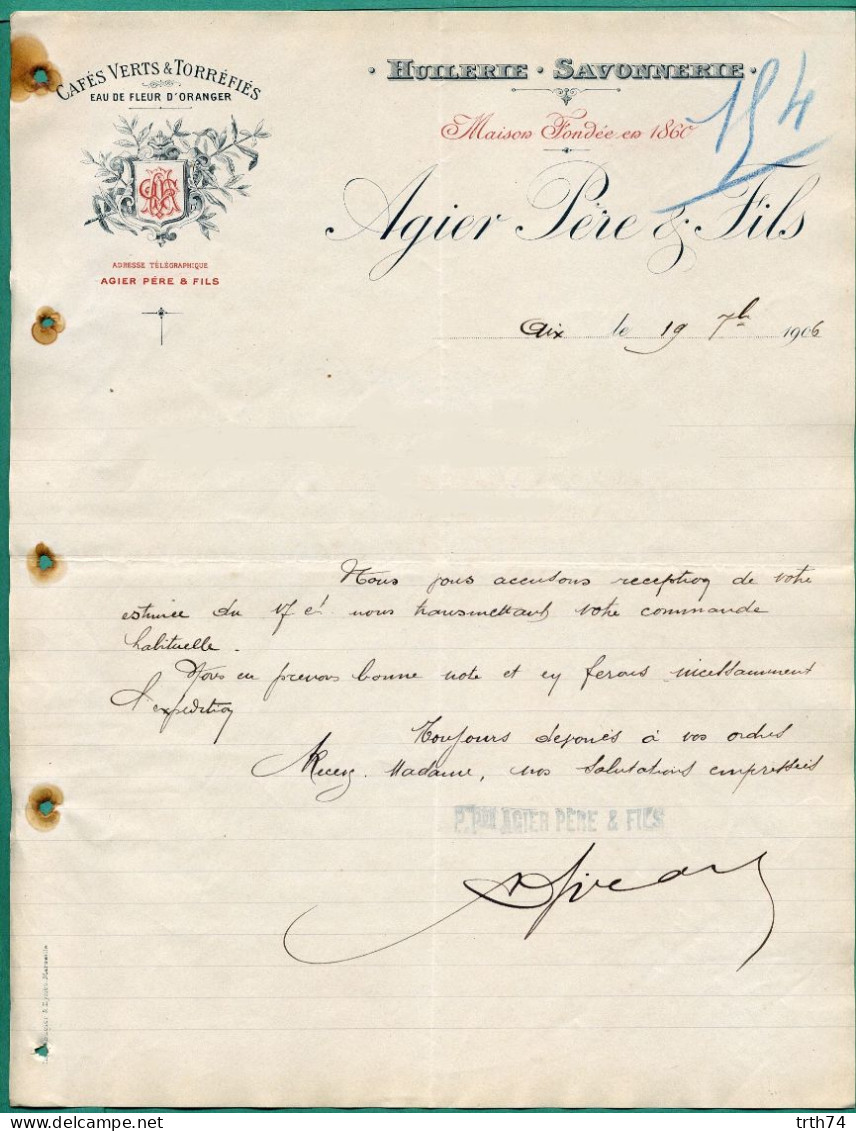 CAFÉS VERTS & TORRÉFIÉS
EAU DE FLEUR D'ORANGER
ADRESSE TÉLÉGRAPHIQUE
AGIER PÉRE & FILS
· HUILERIE · SAVONNERIE ·
Maison Fondée en 1860
154
Agier Père & Fils
Aix le 19 7bre 1906
Nous vous accusons reception de votre
estimée du 17 ct nous transmettant votre commande
habituelle.
Nous en prenons bonne note et en ferons incessamment
l'expédition
Toujours dévoués à vos ordres
Recevez Madame, nos salutations empressées
P. PON AGIER PÈRE & FILS
Marseille
trth74